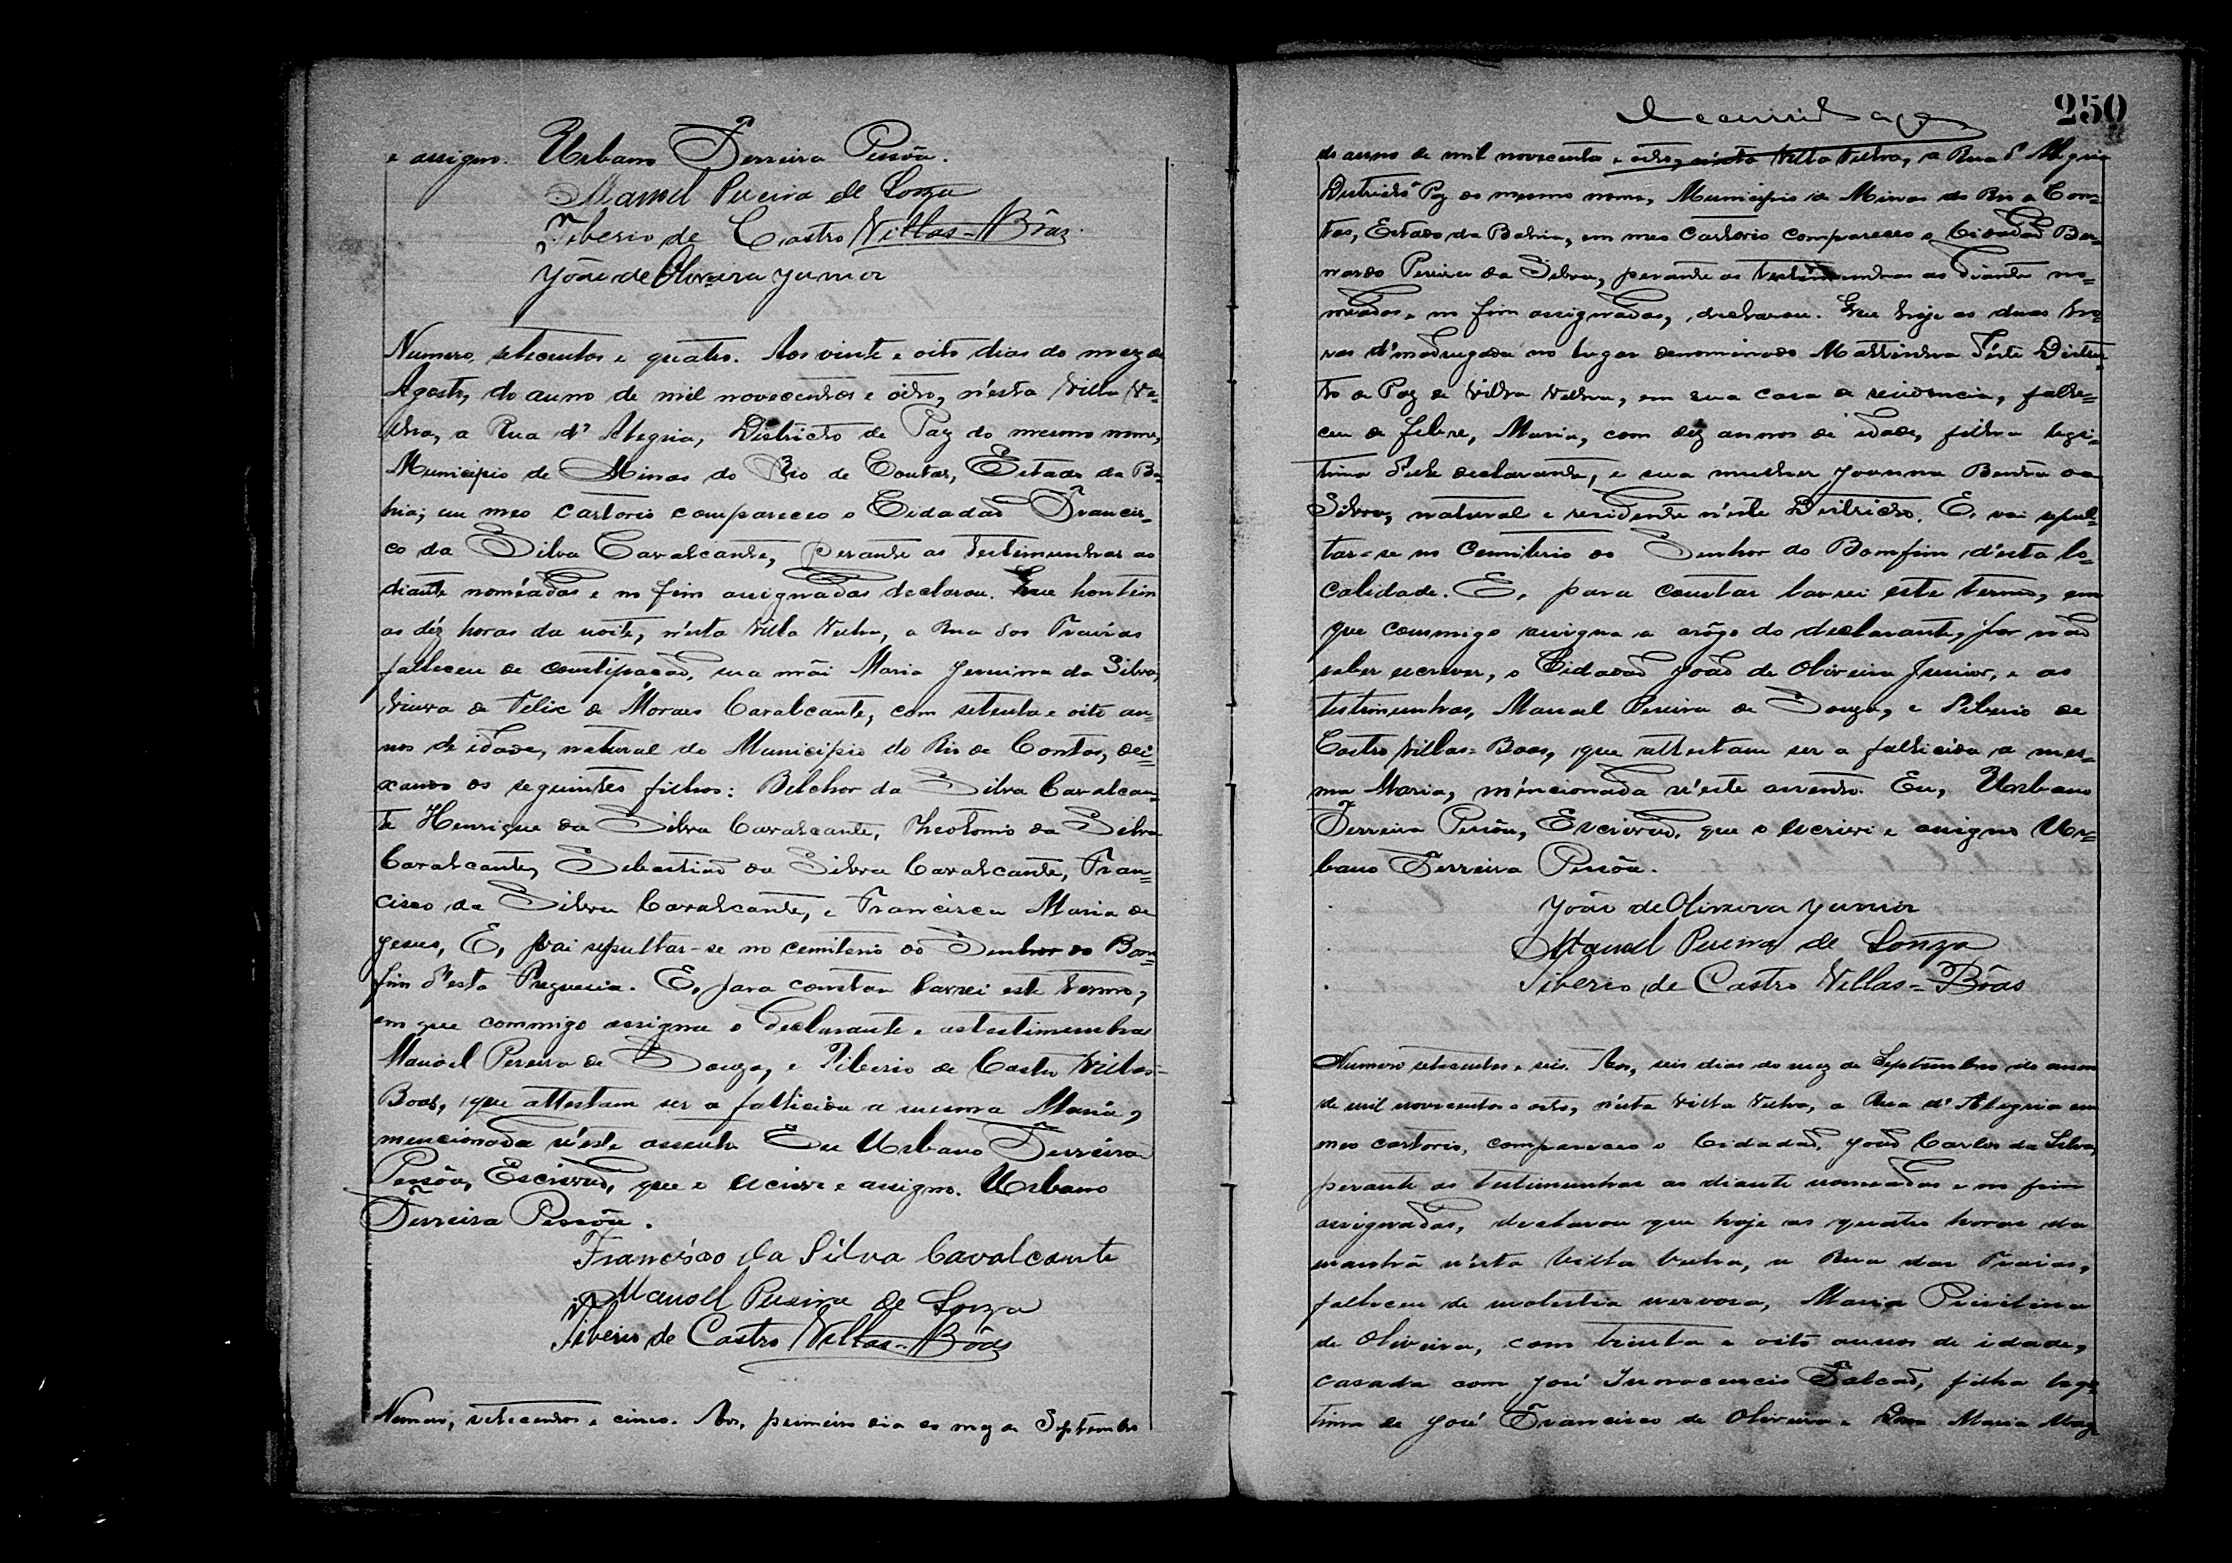 e assigno. Urbano Ferreira Pessôa.
Manoel Pereira de Souza
Tiberio de Castro Villas-Bôas.
João de Oliveira Junior
Numero, setecentos e quatro. Aos vinte e oito dias do mez de
Agosto, do anno de mil novecentos e oito, n'esta Villa Ve-
lha, a Rua d'Alegria, Districto de Paz do mesmo nome,
Municipio de Minas do Rio de Contas, Estado da Ba-
hia; em meo cartorio compareceo o Cidadão Francis-
co da Silva Cavalcante, perante as testimunhas ao
diante noméadas e no fim assignadas declarou. Que hontem
as déz horas da noite, n'esta Villa Velha, a Rua dos Trairas
falleceu de constipação, sua mãi Maria Jeruina da Silva,
viuva de Felix de Moraes Cavalcante, com setenta e oito an-
nos de idade, natural do Municipio do Rio de Contas, dei-
xando os seguintes filhos: Belchor da Silva Cavalcan-
te Henrique da Silva Cavalcante, Theotonio da Silva
Cavalcante, Sebastião da Silva Cavalcante, Fran-
cisco da Silva Cavalcante, e Francisca Maria de
Jesus, E, vai sepultar-se no cemiterio do Senhor do Bom-
fim d'esta Freguesia. E, para constar lavrei este termo,
em que commigo assigna o declarante e as testimunhas
Manoel Pereira de Souza, e Tiberio de Castro Villas-
Boas, que attestam ser a fallicida a mesma Maria,
mencionada n'este assento Eu Urbano Ferreira
Pessôa, Escrivão, que o escrivi e assigno. Urbano
Ferreira Pessôa.
Francisco da Silva Cavalcante
Manoel Pereira de Souza
Tiberio de Castro Villas-Bôas
Numero, setecentos e cinco. Aos, primeiro dia do mez de Septembro
250
do anno de mil novecentos e oito, n'esta Villa Velha, a Rua d'Alegria
Districto Paz do mesmo nome, Municipio de Minas do Rio de Con-
tas, Estado da Bahia, em meo cartorio compareceo o Cidadão Ber-
nardo Pereira da Silva, perante as testimunhas ao diante no-
meadas e no fim assignadas, declarou. Que hoje as duas ho-
ras d'madrugada no lugar denominado Mattinha d'este Distric-
to de Paz de Villa Velha, em sua casa de residencia, falle-
ceu de febre, Maria, com dez annos de idade, filha legi-
tima d'elle declarante, e sua mulher Joanna da
Silva, natural e residente n'este Districto. E, vai sepul-
tar-se no Cemiterio do Senhor do Bomfim d'esta lo-
calidade. E, para constar lavrei este termo, em
que commigo assigna a arôgo do declarante, por não
saber escrever, o Cidadão João de Oliveira Junior, e as
testimunhas, Manoel Pereira de Souza, e Tiberio de
Castro Villas-Boas, que attestam ser a fallicida a mes-
ma Maria, mencionada n'este assento. Eu, Urbano
Ferreira Pessôa, Escrivão, que o escrivi e assigno Ur-
bano Ferreira Pessôa.
João de Oliveira Junior
Manoel Pereira de Souza
Tiberio de Castro Villas-Bôas
Numero setecentos e seis. Aos, seis dias do mez de Septembro do anno
de mil novecentos e oito, n'esta Villa Velha, a Rua d'Alegria em
meo cartorio, compareceo o Cidadão, João Carlos da Silva,
perante as testimunhas ao diante nomeadas e no fim
assignadas, declarou que hoje as quatro horas da
manhã n'esta Villa Velha, a Rua das Trairas,
falleceu de molestia nervosa, Maria
de Oliveira, com trinta e oito annos de idade,
casada com José Innocencio Falcão, filha legi-
tima de José Francisco de Oliveira e Dona Maria